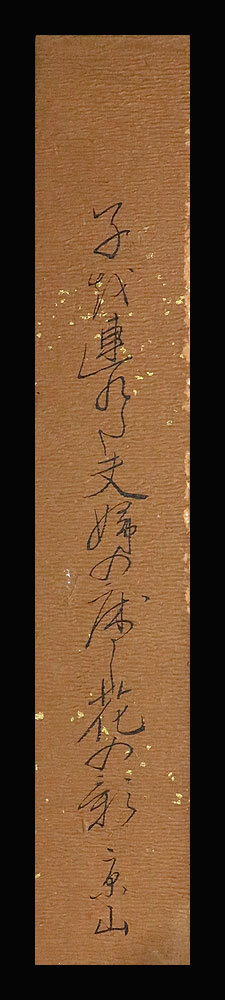 子越連れ夫婦の床し花の影 京山